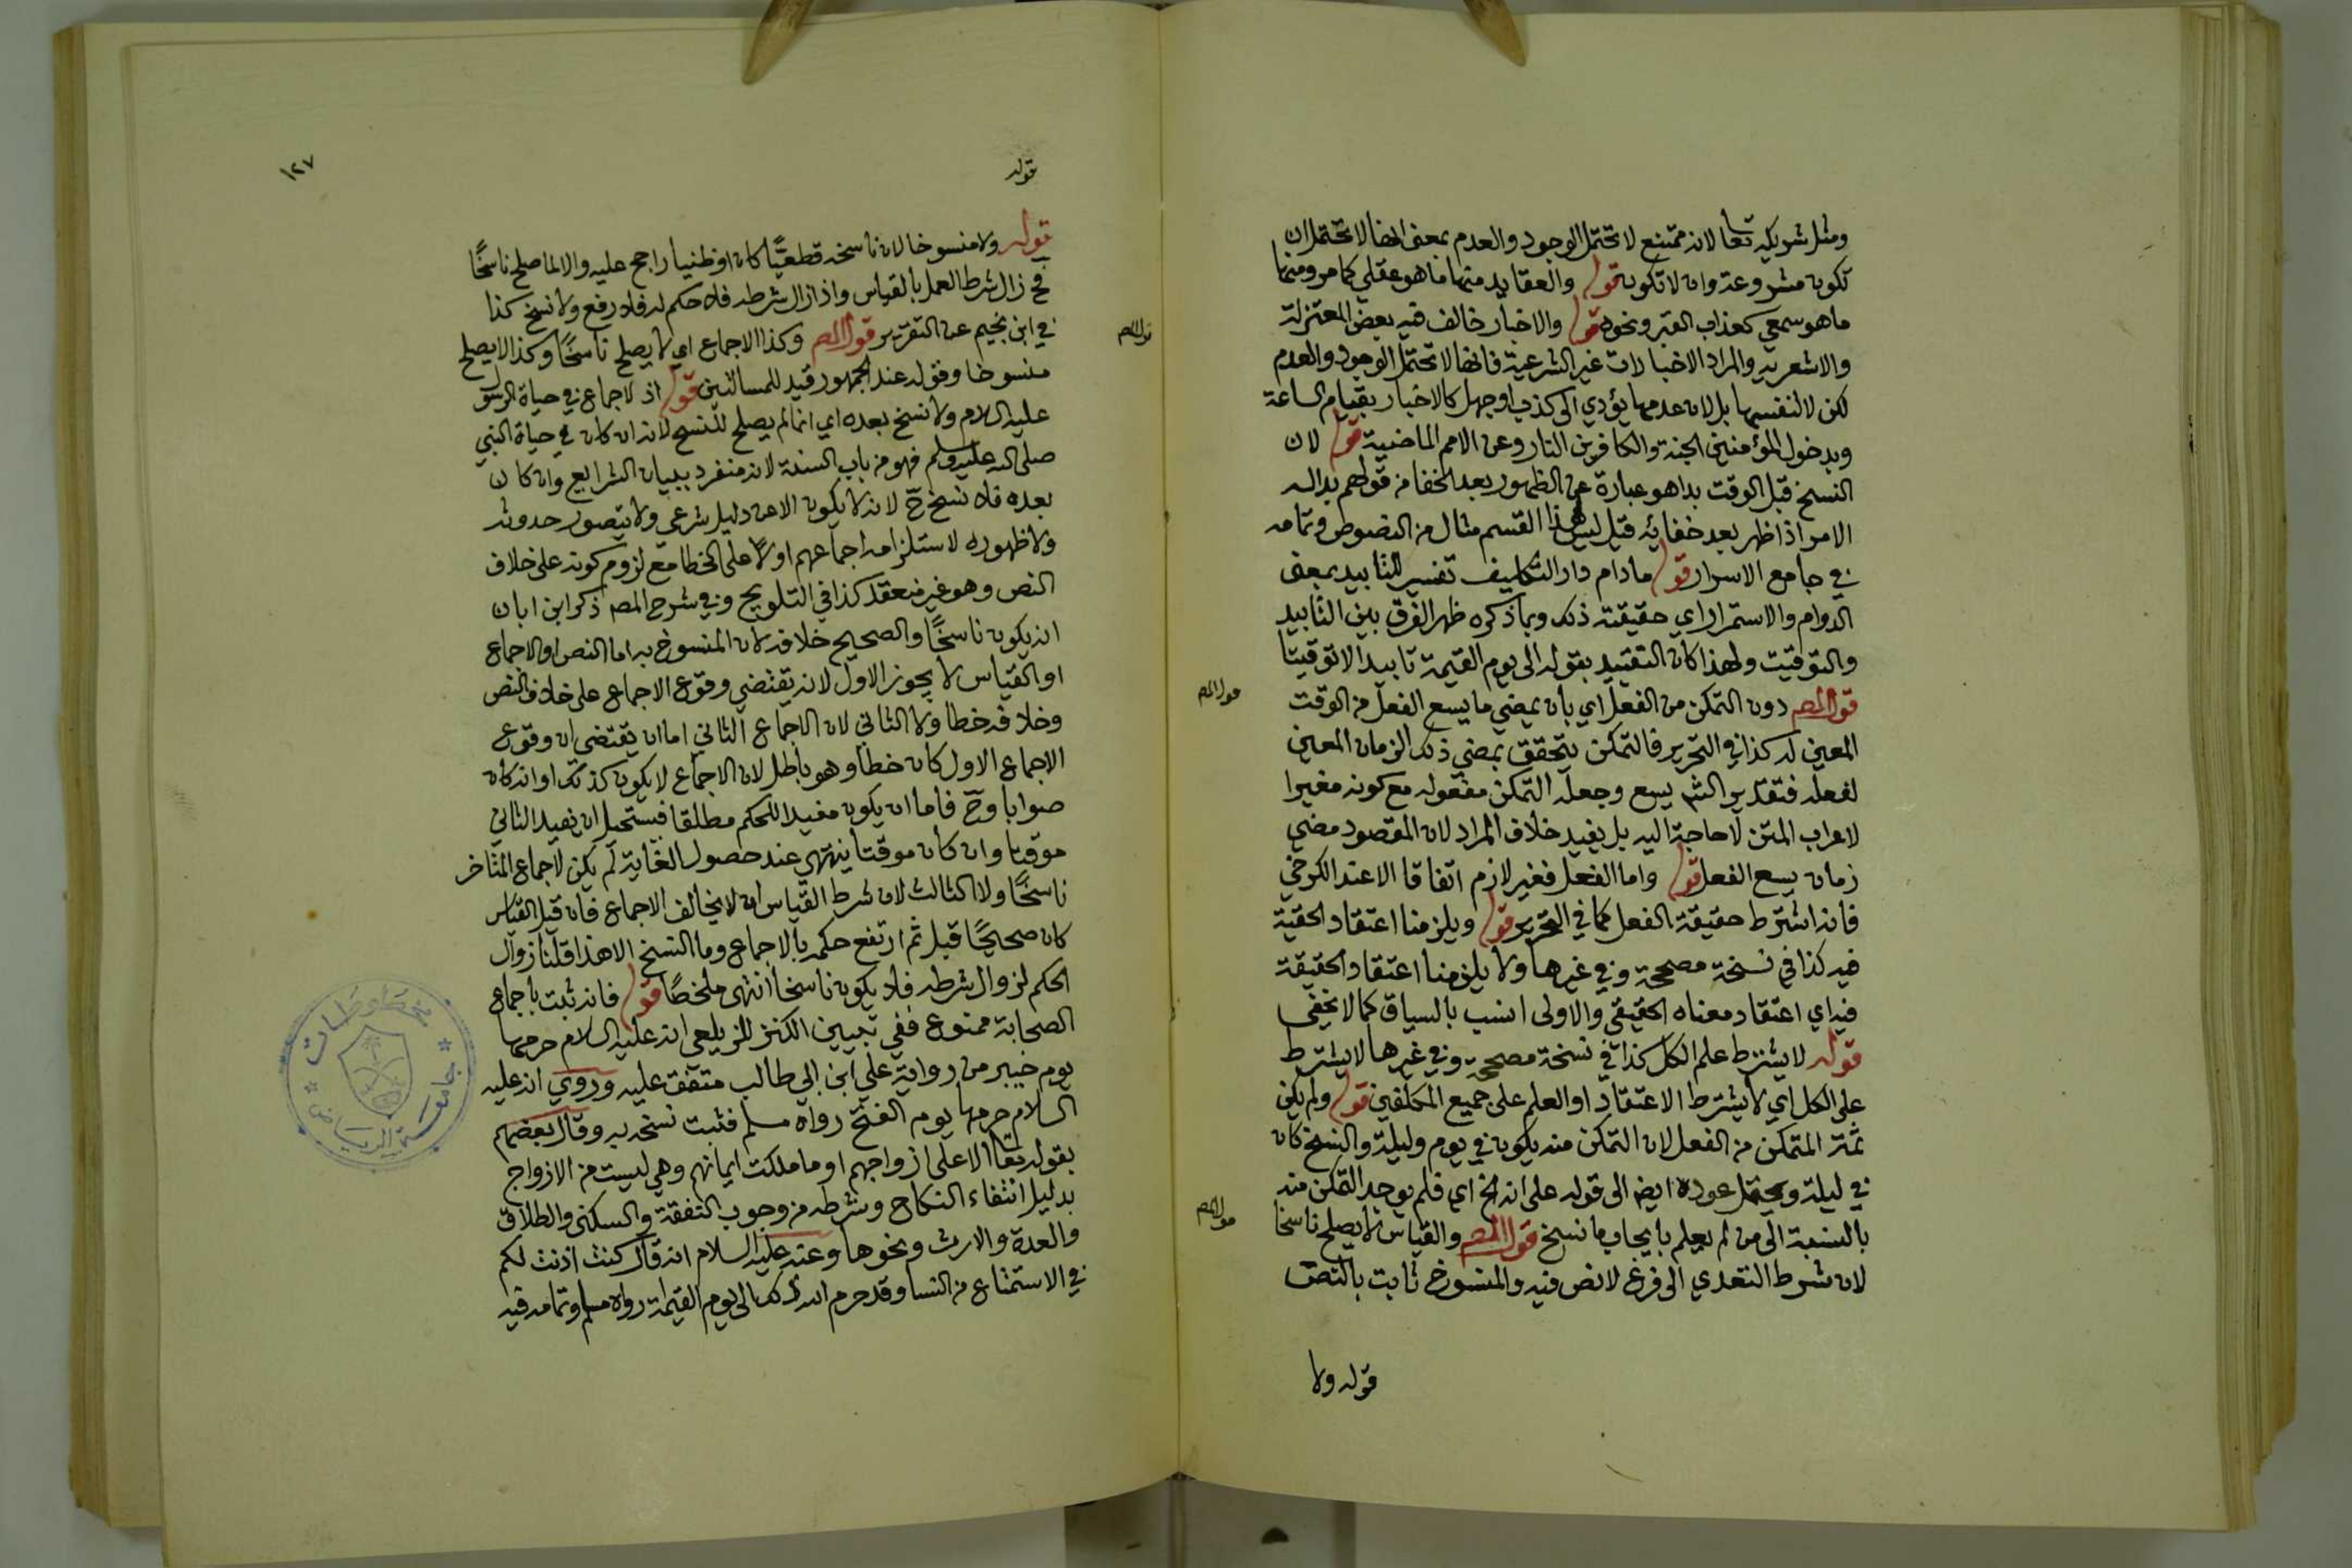 ومثل شريكه تعا لانه ممتنع لا تحتمل الوجود والعدم بمعنى انها لا تحتمل ان
تكون مشروعة وان لا تكون قوله والعقايد منها ما هو عقلي كما مر ومنها
ما هو سمعي كعذاب القبر ونحوه قوله والاخبار خالف فيه بعض المعتزلة
والاشعريه والمراد الاخبارات غير الشرعية فانها لا تحتمل الوجود والعدم
لكن لا لنفسها بل لان عدمها يؤدي الى كذب او جهل كالاخبار بقيام الساعة
وبدخول المؤمنين الجنة والكافرين النار وعن الامم الماضية قوله لان
النسخ قبل الوقت بدا هو عبارة عن الظهور بعد الخفا من قولهم بدا له
الامر اذا ظهر بعد خفائه قيل ليس لهذا القسم مثال من النصوص وتمامه
في جامع الاسرار قوله ما دام دار التكليف تفسير للتابيد بمعنى
الدوام والاستمرار اي حقيقته ذلك وبما ذكره ظهر الفرق بين التابيد
والتوقيت ولهذا كان التقييد بقوله الى يوم القيمة تابيدا لا توقيتا
قول المصـ دون التمكن من الفعل اي بان يمضي ما يسع الفعل من الوقت
المعين له كذا في التحرير فالتمكن يتحقق بمضي ذلك الزمان المعين
لفعله فتقدير الشـ يسع وجعله التمكن مفعوله مع كونه مغيرا
لاعراب المتن لا حاجة اليه بل يفيد خلاف المراد لان المقصود مضي
زمان يسع الفعل قوله واما الفعل فغير لازم اتفاقا الا عند الكرخي
فانه اشترط حقيقة الفعل كما في التحرير قوله ويلزمنا اعتقاد الحقية
فيه كذا في نسخة مصححة وفي غيرها ولا يلزمنا اعتقاد الحقيقة
فيه اي اعتقاد معناه الحقيقي والاولى انسب بالسياق كما لا يخفى
قوله لا يشترط علم الكل كذا في نسخة مصححة وفي غيرها لا يشترط
على الكل اي لا يشترط الاعتقاد او العلم على جميع المكلفين قوله ولم يكن
ثمة المتمكن من الفعل لان التمكن منه يكون في يوم وليلة والنسخ كان
في ليلة ويحتمل عوده ايضا الى قوله على انه الخ اي فلم يوجد التمكن منه
بالنسبة الى من لم يعلم بايجاب ما نسخ قول المصـ والقياس لا يصلح ناسخا
لان شرط التعدي الى فرع لا نص فيه والمنسوخ ثابت بالنص
قوله ولا
قول المصـ
قول المصـ
قوله
١٢٧
قوله ولا منسوخا لان ناسخه قطعيًّا كان او ظنيا راجح عليه والا لما صلح ناسخًا
فح زال شرط العمل بالقياس واذا زال شرطه فلا حكم له فلا رفع ولا نسخ كذا
في ابن نجيم عن التقرير قول المصـ وكذا الاجماع اي لا يصلح ناسخًا وكذا لا يصلح
منسوخا وقوله عند الجمهور قيد للمسالتين قوله اذ لا اجماع في حياة الرسول
عليه السلام ولا نسخ بعده اي انما لم يصلح للنسخ لانه ان كان في حياة النبي
صلى الله عليه وسلم فهو من باب السنة لانه منفرد ببيان الشرايع وان كان
بعده فلا نسخ ح لانه لا يكون الا عن دليل شرعي ولا يتصور حدوثه
ولا ظهوره لاستلزامه اجماعهم اولًا على الخطا مع لزوم كونه على خلاف
النص وهو غير منعقد كذا في التلويح وفي شرح المصـ ذكر ابن ابان
انه يكون ناسخًا والصحيح خلافه لان المنسوخ به اما النص او الاجماع
او القياس لا يجوز الاول لانه يقتضي وقوع الاجماع على خلاف النص
وخلافه خطا ولا الثاني لان الاجماع الثاني اما ان يقتضي ان وقوع
الاجماع الاول كان خطأ وهو باطل لان الاجماع لا يكون كذلك او انه كان
صوابا وح فاما ان يكون مفيدا للحكم مطلقا فيستحيل ان يفيد الثاني
موقتا وان كان موقتا ينتهي عند حصول الغاية لم يكن الاجماع المتاخر
ناسخًا ولا الثالث لان شرط القياس ان لا يخالف الاجماع فان قيل القياس
كان صحيحًا قبل ثم ارتفع حكمه بالاجماع وما النسخ الا هذا قلنا زوال
الحكم لزوال شرطه فلا يكون ناسخا انتهى ملخصًا قوله فانه ثبت باجماع
الصحابة ممنوع ففي تبيين الكنز للزيلعي انه عليه السلام حرمها
يوم خيبر من رواية علي ابن ابي طالب متفق عليه وروي انه عليه
السلام حرمها يوم الفتح رواه مسلم فثبت نسخه به وقال بعضهم
بقوله تعا الا على ازواجهم او ما ملكت ايمانهم وهي ليست من الازواج
بدليل انتفاء النكاح وشرطه من وجوب النفقة والسكنى والطلاق
والعدة والارث ونحوها وعنه عليه السلام انه قال كنت اذنت لكم
في الاستمتاع من النسا وقد حرم الله ذلك الى يوم القيامة رواه مسلم وتمامه فيه
قول المصـ
مخطوطات
جامعة الرياض